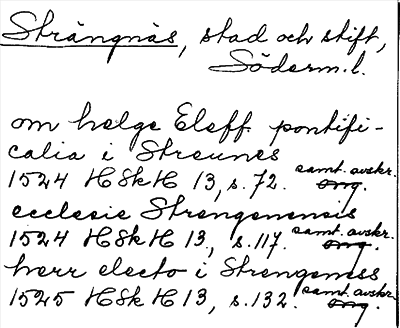 Strängnäs, stad och stift,
Söderm.l.
om helge Eleff pontifi-
calia i Streunes
samt. avskr.
1524 HSkH 13, s. 72. orig.
ecclesie Strengenensis
samt. avskr.
1524 HSkH 13, s. 117. orig.
herr electo i Strengeness
samt. avskr.
1525 HSkH 13, s. 132. orig.